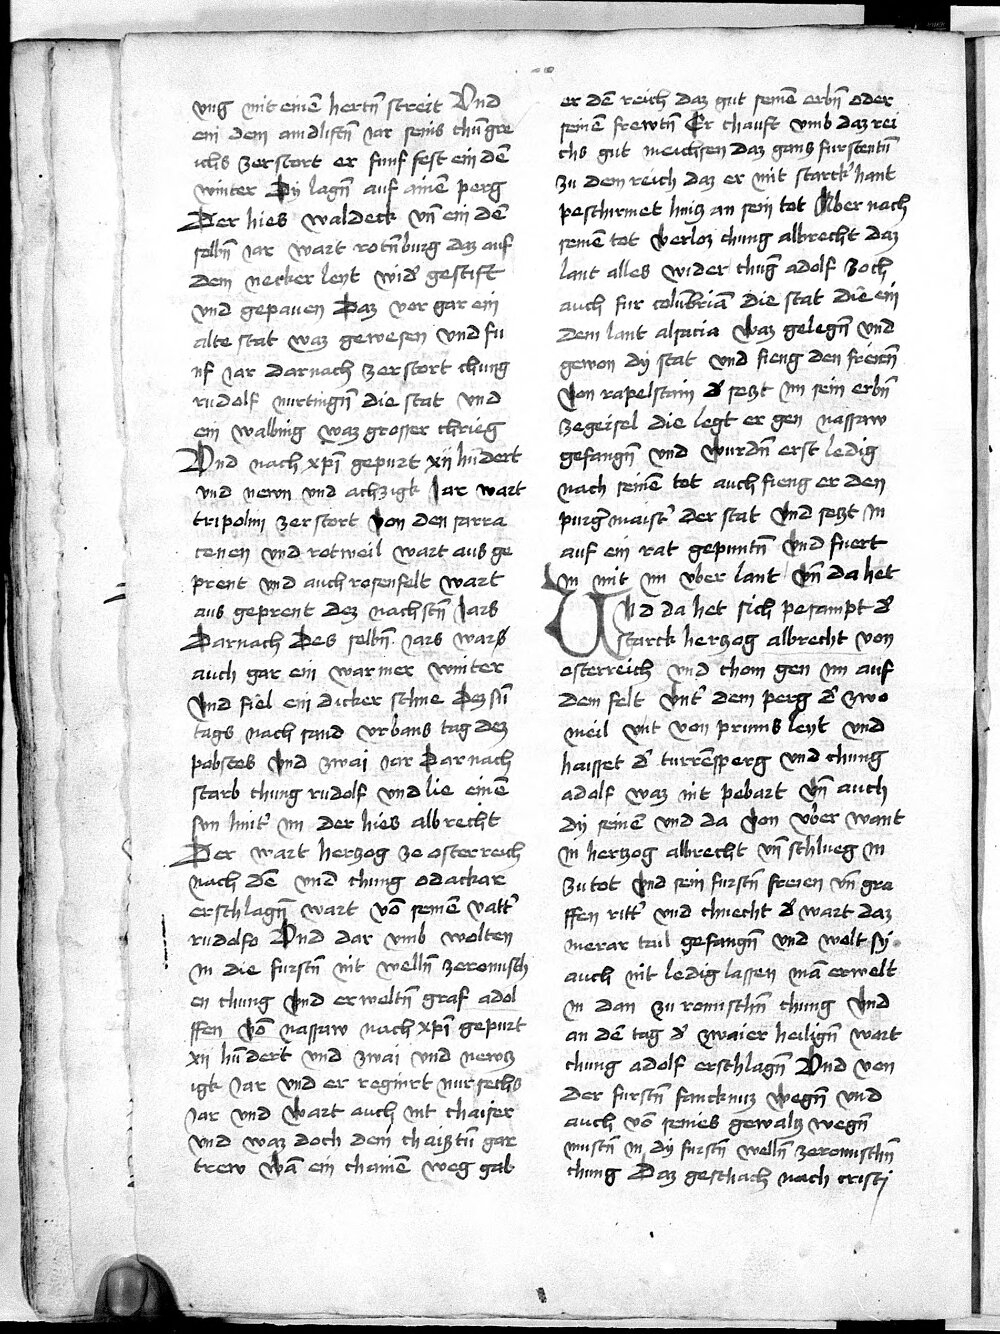 vng mit einē hertn̄ streit Vnd
ein dem aindliftn̄ Jar seins chūngre
ichs zerstort er funf fest ein dē
winter Dy lagn̄ auf ainē perg
Der hies waldeck vn̄ ein dē
selbn̄ Jar wart rotn̄burg daz auf
dem necker leyt wid' gestift
vnd gepauen Daz vor gar ein
alte stat waz gewesen vnd fu
nf Jar darnach zerstort chung
rudolf nurtingn̄ die stat vnd
ein waz grosser chrieg
Vnd nach xp̄i gepurt xij hūdert
vnd newn vnd achzigk Jar wart
tripolim zerstort von den sarra
cenen vnd rotweil wart aus ge
prent vnd auch rosenfelt wart
aus geprent dez nachstn̄ Jars
Darnach Des selbn̄ Jars wars
auch gar ein warmer winter
vnd fiel ein dicker schne Dez
tags nach sand vrbans tag dez
pabstes vnd zwai Jar Darnach
starb chung rudolf vnd lie einē
sun hint' im der hies albrecht
Der wart hertzog ze osterreich
nach dē vnd chung odackar
erschlagn̄ wart vō seinē vatt'
rudolfo Vnd dar vmb wolten
in die furstn̄ nit welln̄ ze romisch
en chung vnd erweltn̄ graf adol
ffen vō nassaw nach xp̄i gepurt
xij hūdert vnd zwai vnd newz
igk Jar vnd er reginrt nur sechs
Jar vnd wart auch nit chaiser
vnd waz doch dem gar
trew wā ein chainē weg gab
er dē reich daz gut seinē erbn̄ oder
seinē frewtn̄ Er chauft vmb daz rei
chs gut meichsen daz gans furstentn̄
zu dem reich daz er mit starck' hant
peschirmet hintz an sein tot Aber nach
seinē tot verloz chung albrecht daz
lant alles wider chūg adolf zoch
auch fur columbriā die stat die ein
dem lant alsacia waz gelegn̄ vnd
gewon dy stat vnd fieng den freien̄
von rapelstain d' setzt im sein erbn̄
ze geisel die legt er gen nassaw
gefangn̄ vnd wurdn̄ erst ledig
nach seinē tot auch fieng er den
purg'maist' der stat vnd setzt in
auf ein rat gepuntn̄ vnd fuert
in mit im vber lant vn̄ da het
Vnd da het sich pesampt d'
starck hertzog albrecht von
osterreich vnd chom gen im auf
dem felt vnt' dem perg d' zwo
meil vnt von leyt vnd
haisset d' turrensperg vnd chung
adolf waz nit pebart vn̄ auch
dy seinē vnd da von vber want
in hertzog albrecht vn̄ schlueg in
zu tot vnd sein furstn̄ freien vn̄ gra
ffen ritt' vnd chnecht d' wart daz
merar tail gefangn̄ vnd wolt sy
auch nit ledig lassen mā erwelt
in dan zu romischn̄ chung vnd
an dē tag d' zwaier heilign̄ wart
chung adolf erschlagn̄ Vnd von
der furstn̄ fancknuz wegn̄ vnd
auch vō seines gewaltz wegn̄
mustn̄ in dy furstn̄ welln̄ ze romischn̄
chung Daz geschach nach cristi